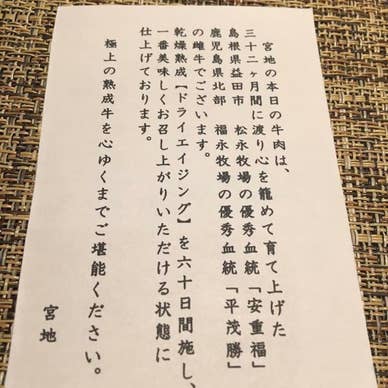 宮地の本日の牛肉は、
三十二ヶ月間に渡り心を籠めて育て上げた
島根県益田市　松永牧場の優秀血統「安重福」
鹿児島県北部　福永牧場の優秀血統「平茂勝」
の雌牛でございます。
乾燥熟成【ドライエイジング】を六十日間施し、
一番美味しくお召し上がりいただける状態に
仕上げております。
極上の熟成牛を心ゆくまでご堪能ください。
宮地